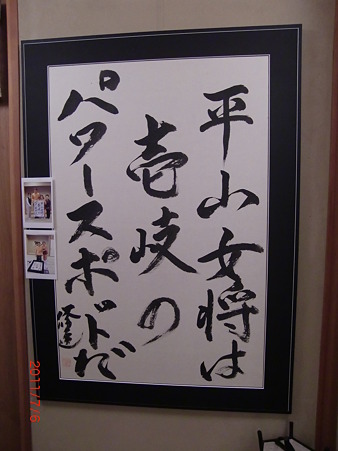 平山女将は
壱岐の
パワースポットだ
2011/7/6